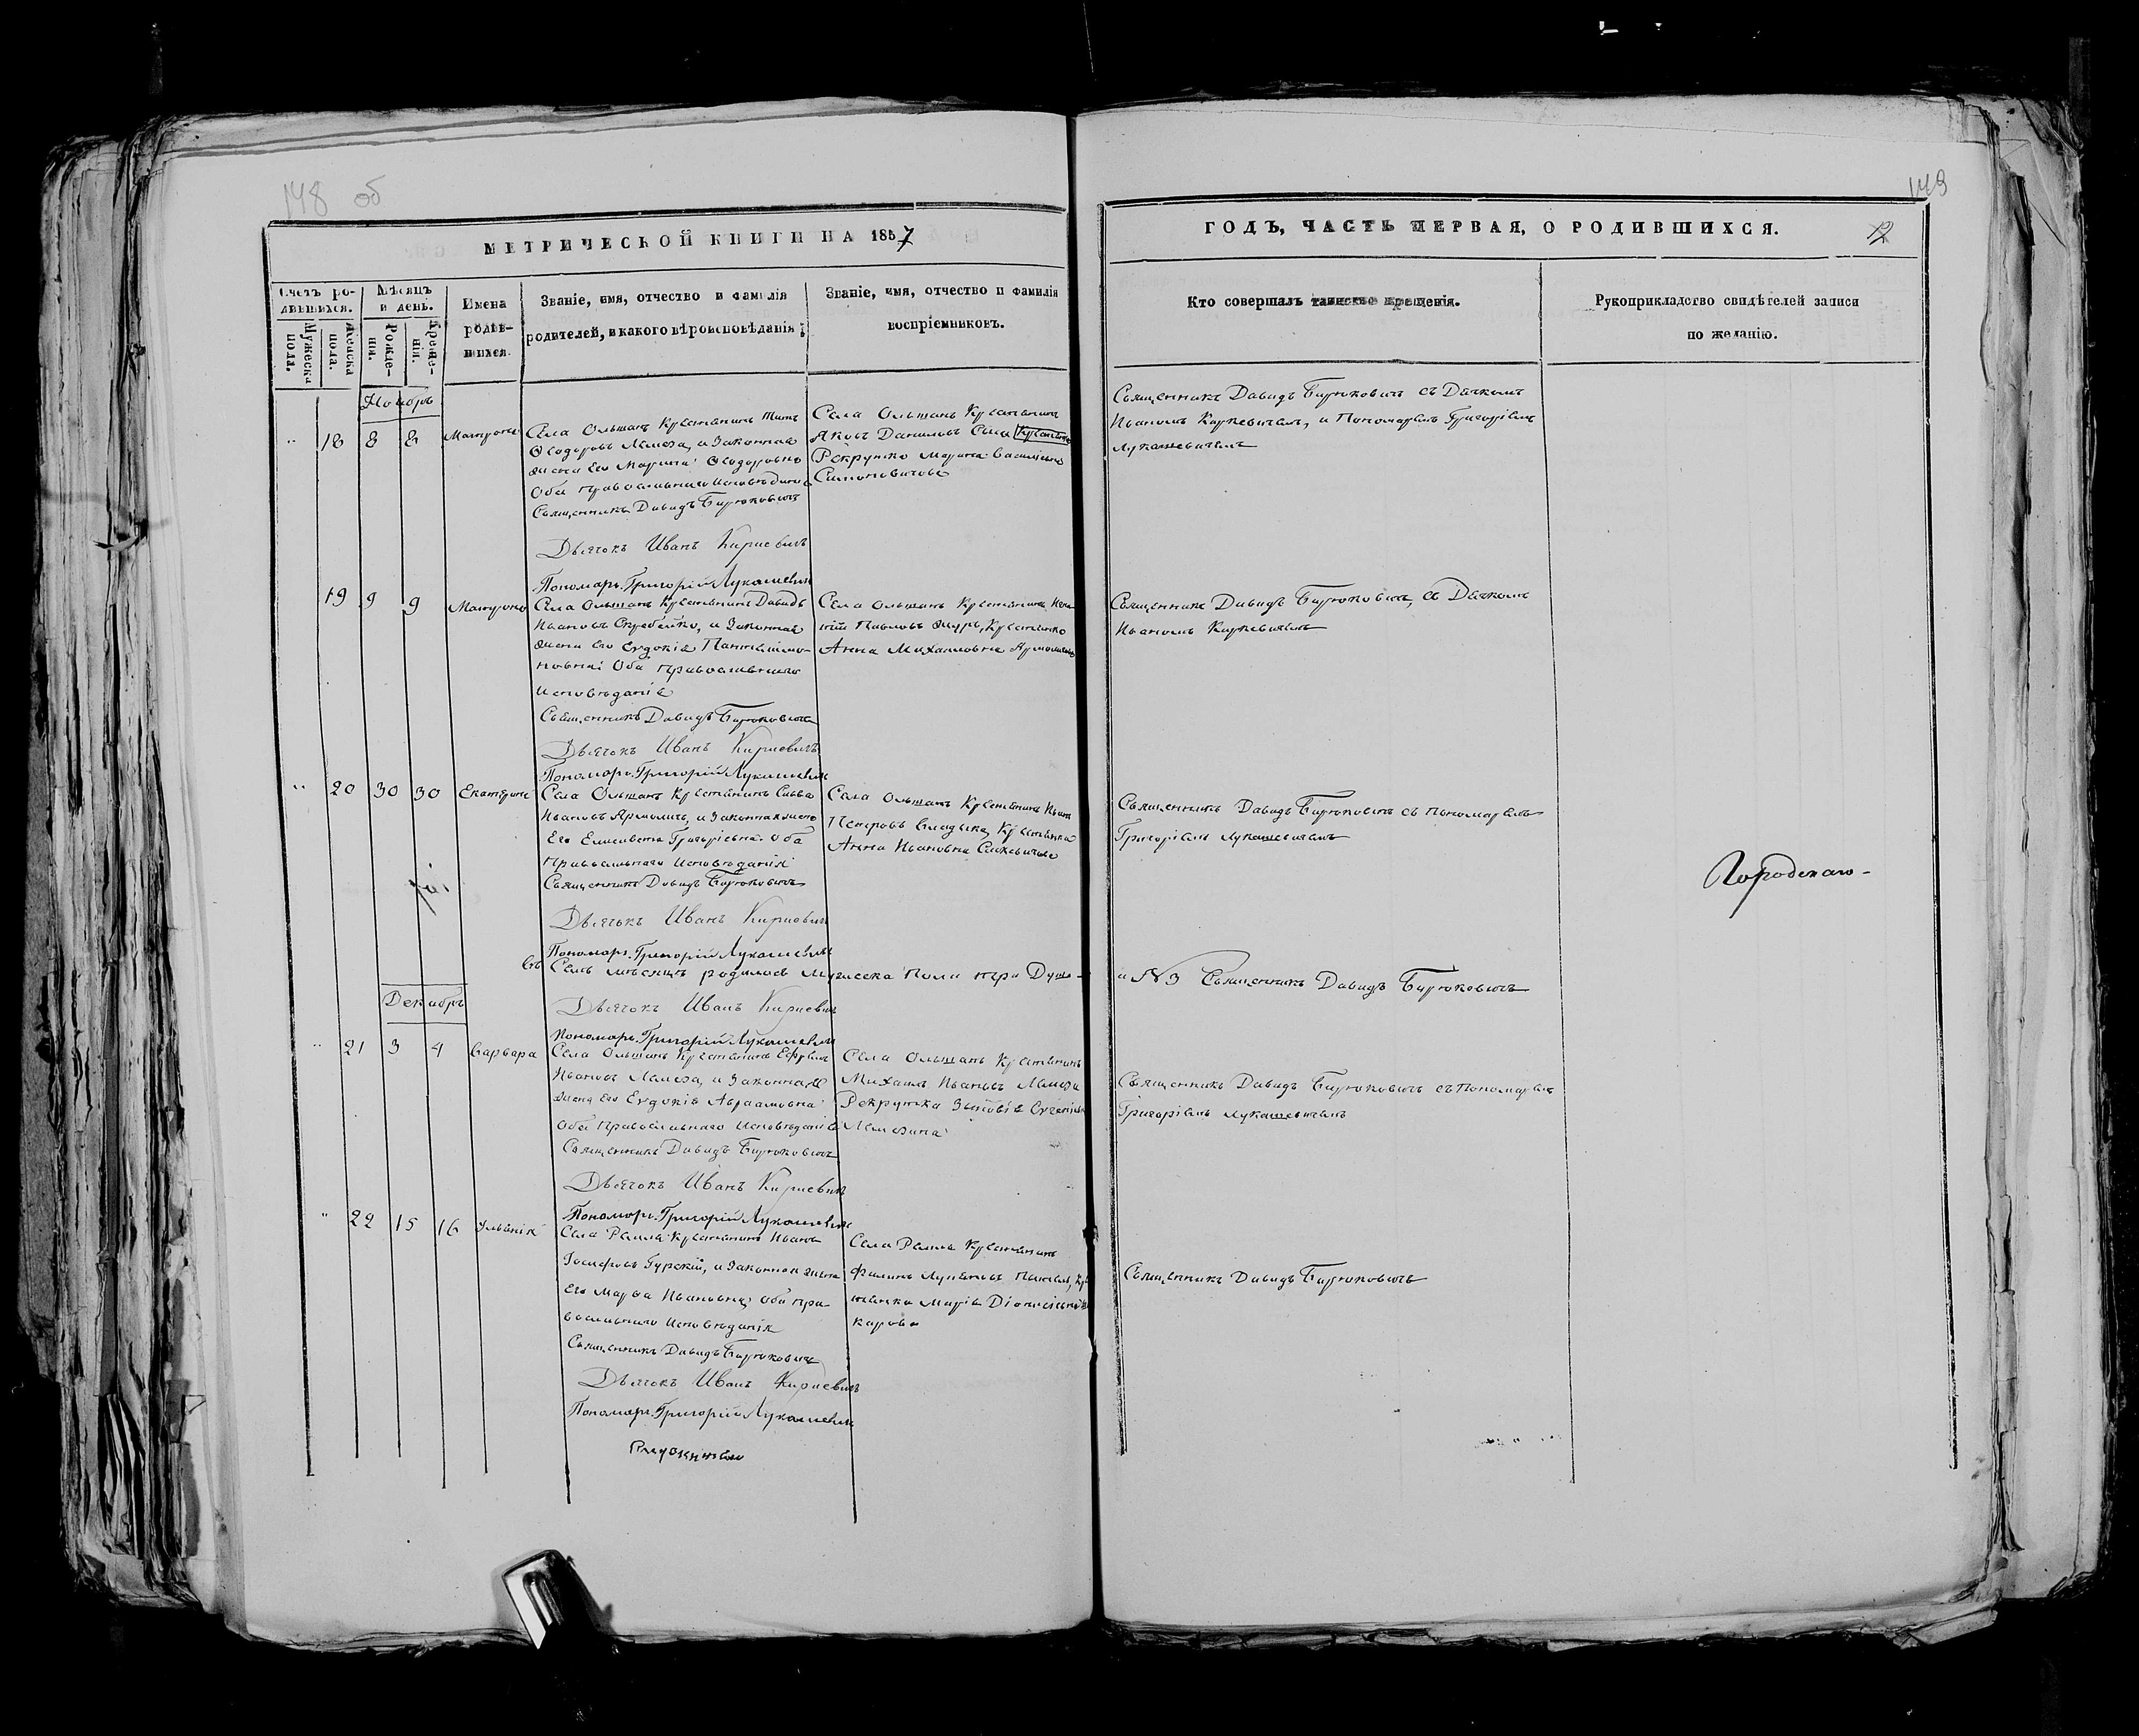 148 об
МЕТРИЧЕСКОЙ КНИГИ НА 1857
Счетъ ро-
дившихся.
Мужеска
пола.
Женска
пола.
Мѣсяцъ
и день.
Рожде-
нія.
Креще-
нія.
Имена
родив-
шихся.
Званіе, имя, отчество и фамилія
родителей, и какого вѣроисповѣданія
Званіе, имя, отчество и фамилія
воспріемниковъ.
Ноябрь
18 8 8 Матрона
Села Ольшанъ Крестьянинъ Титъ
Ѳеодоровъ Лемеза, и Законная
жена Его Марина Ѳеодоровна
Оба Православнаго Исповѣданія
Священникъ Давидъ Бирюковичъ
Дьячокъ Иванъ Киркевичъ
Пономарь Григорій Лукашевичъ
Села Ольшанъ Крестьянинъ
Яковъ Даниловъ
Рекрутка Марина Василіева
Симоновичова
19 9 9 Матрона
Села Ольшанъ Крестьянинъ Давидъ
Ивановъ Скребейко, и Законная
жена Его Евдокія Пантелимо-
новна: Оба Православнаго
Исповѣданія
Священникъ Давидъ Бирюковичъ
Дьячокъ Иванъ Киркевичъ
Пономарь Григорій Лукашевичъ
Села Ольшанъ Крестьянинъ
Павловъ Жура, Крестьянка
Анна Михаиловна
20 30 30 Екатерина
Села Ольшанъ Крестьянинъ Савва
Ивановъ Ярмоличъ, и Законная жена
Его Елисавета Григоріевна: Оба
Православнаго Исповѣданія
Священникъ Давидъ Бирюковичъ
Дьячокъ Иванъ Киркевичъ
Пономарь Григорій Лукашевичъ
Села Ольшанъ Крестьянинъ Иванъ
Петровъ Владыка, Крестьянка
Анна Ивановна
Въ Семъ мѣсяцѣ родилося Мужеска Пола три Душ-
Дьячокъ Иванъ Киркевичъ
Пономарь Григорій Лукашевичъ
Декабрь
21 3 4 Варвара
Села Ольшанъ Крестьянинъ Ефремъ
Ивановъ Лемеза, и Законная
жена Его Евдокія Авраамовна
Оба Православнаго Исповѣданія
Священникъ Давидъ Бирюковичъ
Дьячокъ Иванъ Киркевичъ
Пономарь Григорій Лукашевичъ
Села Ольшанъ Крестьянинъ
Михаилъ Ивановъ Лемеза
Рекрутка Зиновія
Лемезина
22 15 16 Ульянія
Села Рамля Крестьянинъ Иванъ
Іосифовъ Гурскій, и Законная жена
Его Марѳа Ивановна: Оба Пра-
вославнаго Исповѣданія
Священникъ Давидъ Бирюковичъ
Дьячокъ Иванъ Киркевичъ
Пономарь Григорій Лукашевичъ
Села Рамля Крестьянинъ
Филипъ
Марія
149
ГОДЪ, ЧАСТЬ ПЕРВАЯ, О РОДИВШИХСЯ.
12
Кто совершалъ таинство крещенія.
Рукоприкладство свидѣтелей записи
по желанію.
Священникъ Давидъ Бирюковичъ съ Дячкомъ
Иваномъ Киркевичемъ, и Пономаремъ Григоріемъ
Лукашевичемъ
Священникъ Давидъ Бирюковичъ, съ Дячкомъ
Иваномъ Киркевичемъ
Священникъ Давидъ Бирюковичъ съ Пономаремъ
Григоріемъ Лукашевичемъ
и №3 Священникъ Давидъ Бирюковичъ
Священникъ Давидъ Бирюковичъ съ Пономаремъ
Григоріемъ Лукашевичемъ
Священникъ Давидъ Бирюковичъ